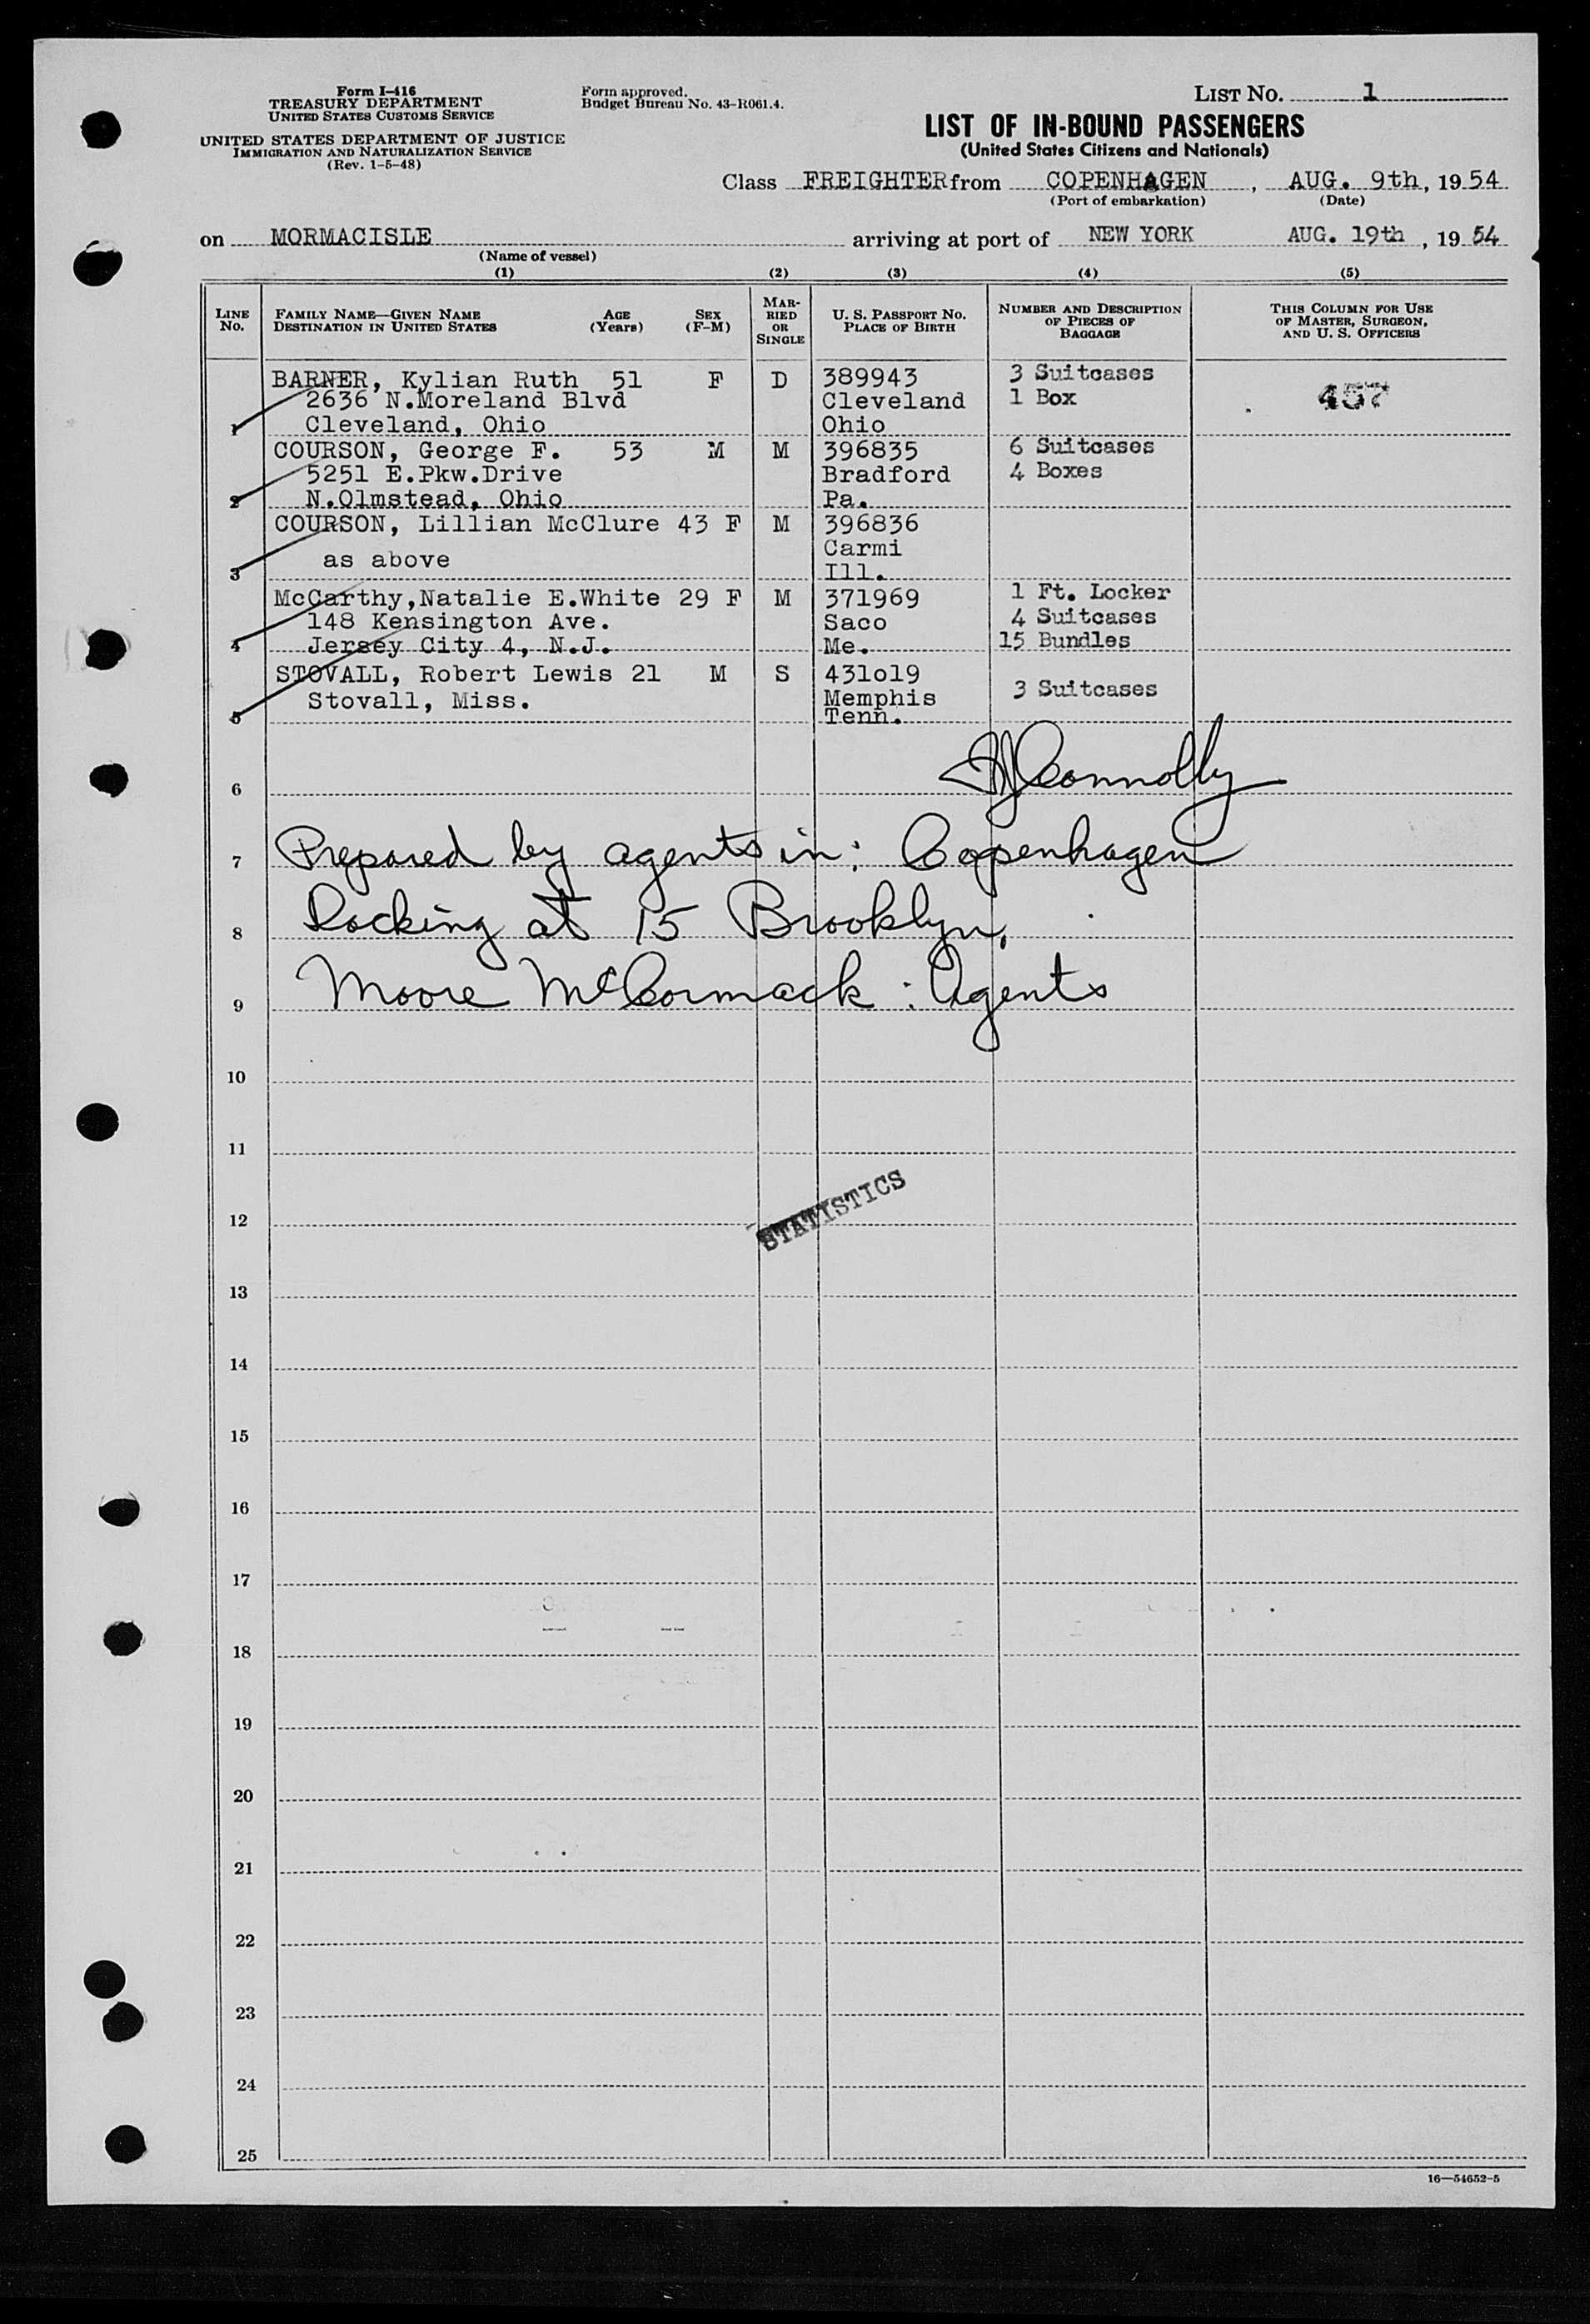 Form I-416
TREASURY DEPARTMENT
UNITED STATES CUSTOMS SERVICE
UNITED STATES DEPARTMENT OF JUSTICE
IMMIGRATION AND NATURALIZATION SERVICE
(Rev. 1-5-48)
Form approved.
Budget Bureau No. 43-R061.4.
LIST No. 1
LIST OF IN-BOUND PASSENGERS
(United States Citizens and Nationals)
Class FREIGHTER from COPENHAGEN, AUG. 9th, 1954
(Port of embarkation) (Date)
on MORMACISLE arriving at port of NEW YORK AUG. 19th, 1954
(Name of vessel)
(1) (2) (3) (4) (5)
LINE No. FAMILY NAME—GIVEN NAME DESTINATION IN UNITED STATES AGE (Years) SEX (F-M) MARRIED OR SINGLE U. S. PASSPORT No. PLACE OF BIRTH NUMBER AND DESCRIPTION OF PIECES OF BAGGAGE THIS COLUMN FOR USE OF MASTER, SURGEON, AND U. S. OFFICERS
BARNER, Kylian Ruth 51 F D 389943 3 Suitcases
2636 N.Moreland Blvd Cleveland 1 Box 457
1 Cleveland, Ohio Ohio
COURSON, George F. 53 M M 396835 6 Suitcases
5251 E.Pkw.Drive Bradford 4 Boxes
2 N.Olmstead, Ohio Pa.
COURSON, Lillian McClure 43 F M 396836
as above Carmi
3 Ill.
McCarthy,Natalie E.White 29 F M 371969 1 Ft. Locker
148 Kensington Ave. Saco 4 Suitcases
4 Jersey City 4, N.J. Me. 15 Bundles
STOVALL, Robert Lewis 21 M S 431o19
Stovall, Miss. Memphis 3 Suitcases
5 Tenn.
Connolly
6
7 Prepared by agents in: Copenhagen
8 Docking at 15 Brooklyn.
9 Moore McCormack: Agents
10
11
STATISTICS
12
13
14
15
16
17
18
19
20
21
22
23
24
25
16—54652-5